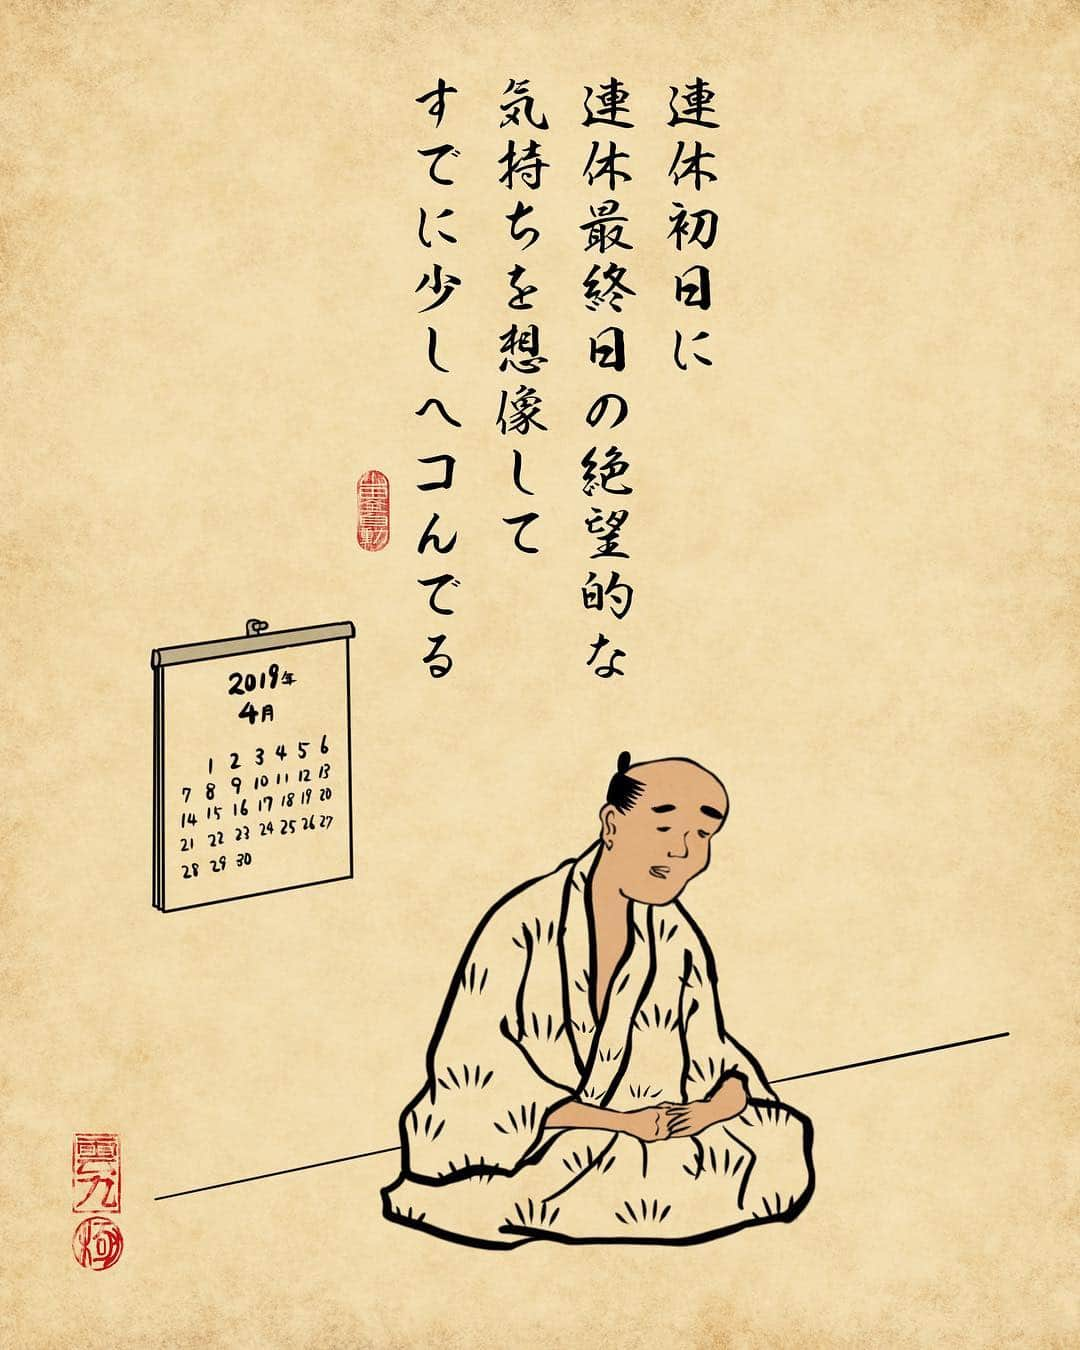 連休初日に
連休最終日の絶望的な
気持ちを想像して
すでに少しヘコんでる
2019年
4月
1 2 3 4 5 6
7 8 9 10 11 12 13
14 15 16 17 18 19 20
21 22 23 24 25 26 27
28 29 30